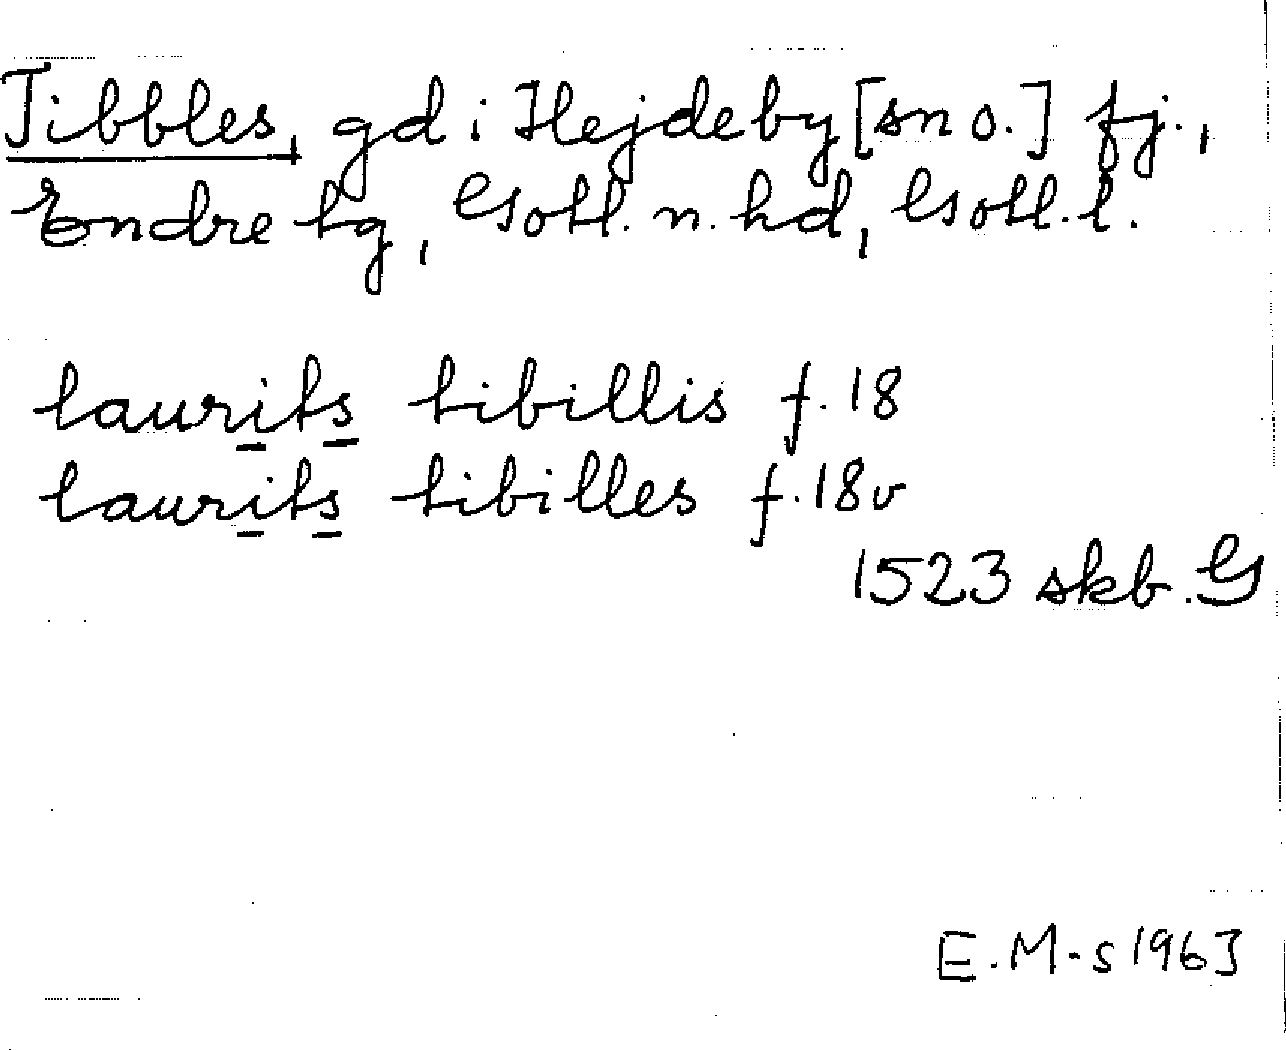 Tibbles, gd i Hejdeby [sn o.] fj.,
Endre tg, Gotl. n. hd, Gotl. l.
laurits tibillis f. 18
laurits tibilles f. 18v
1523 skb. G
E. M-s 1963